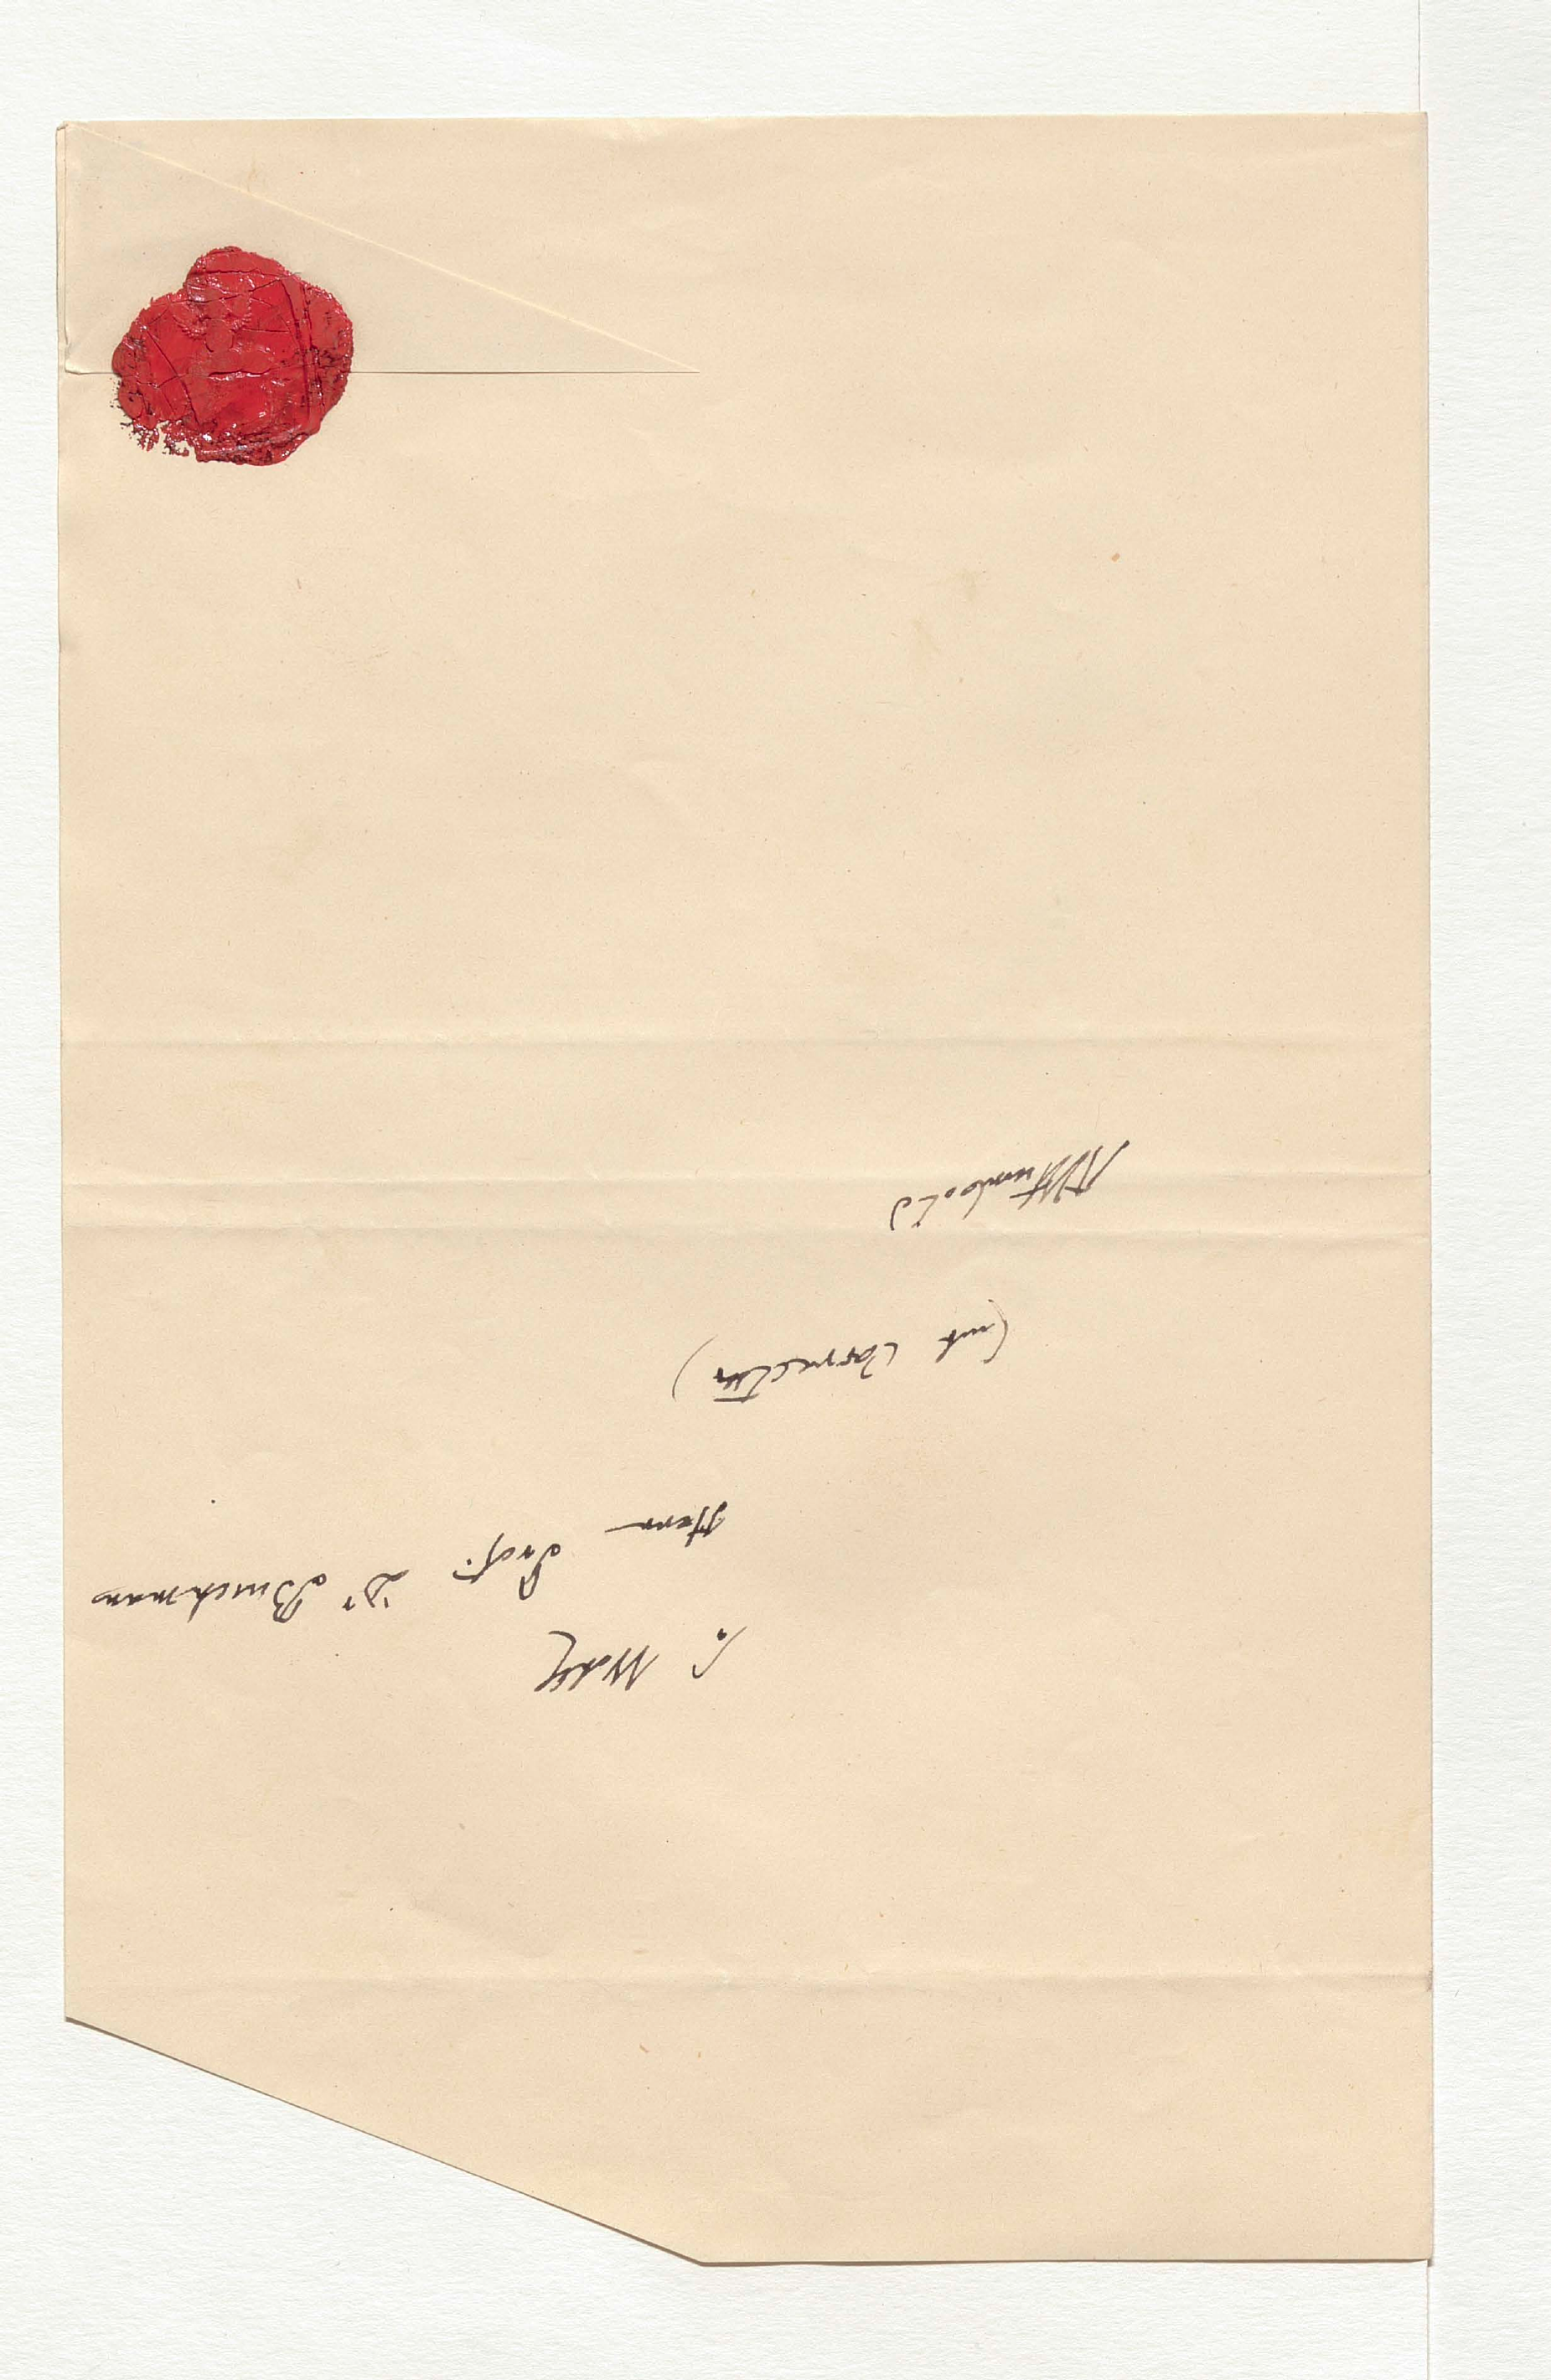 S. Wolg
Herrn Prof. Dr Buschmann
(mit Correctur)
AvHumboldt